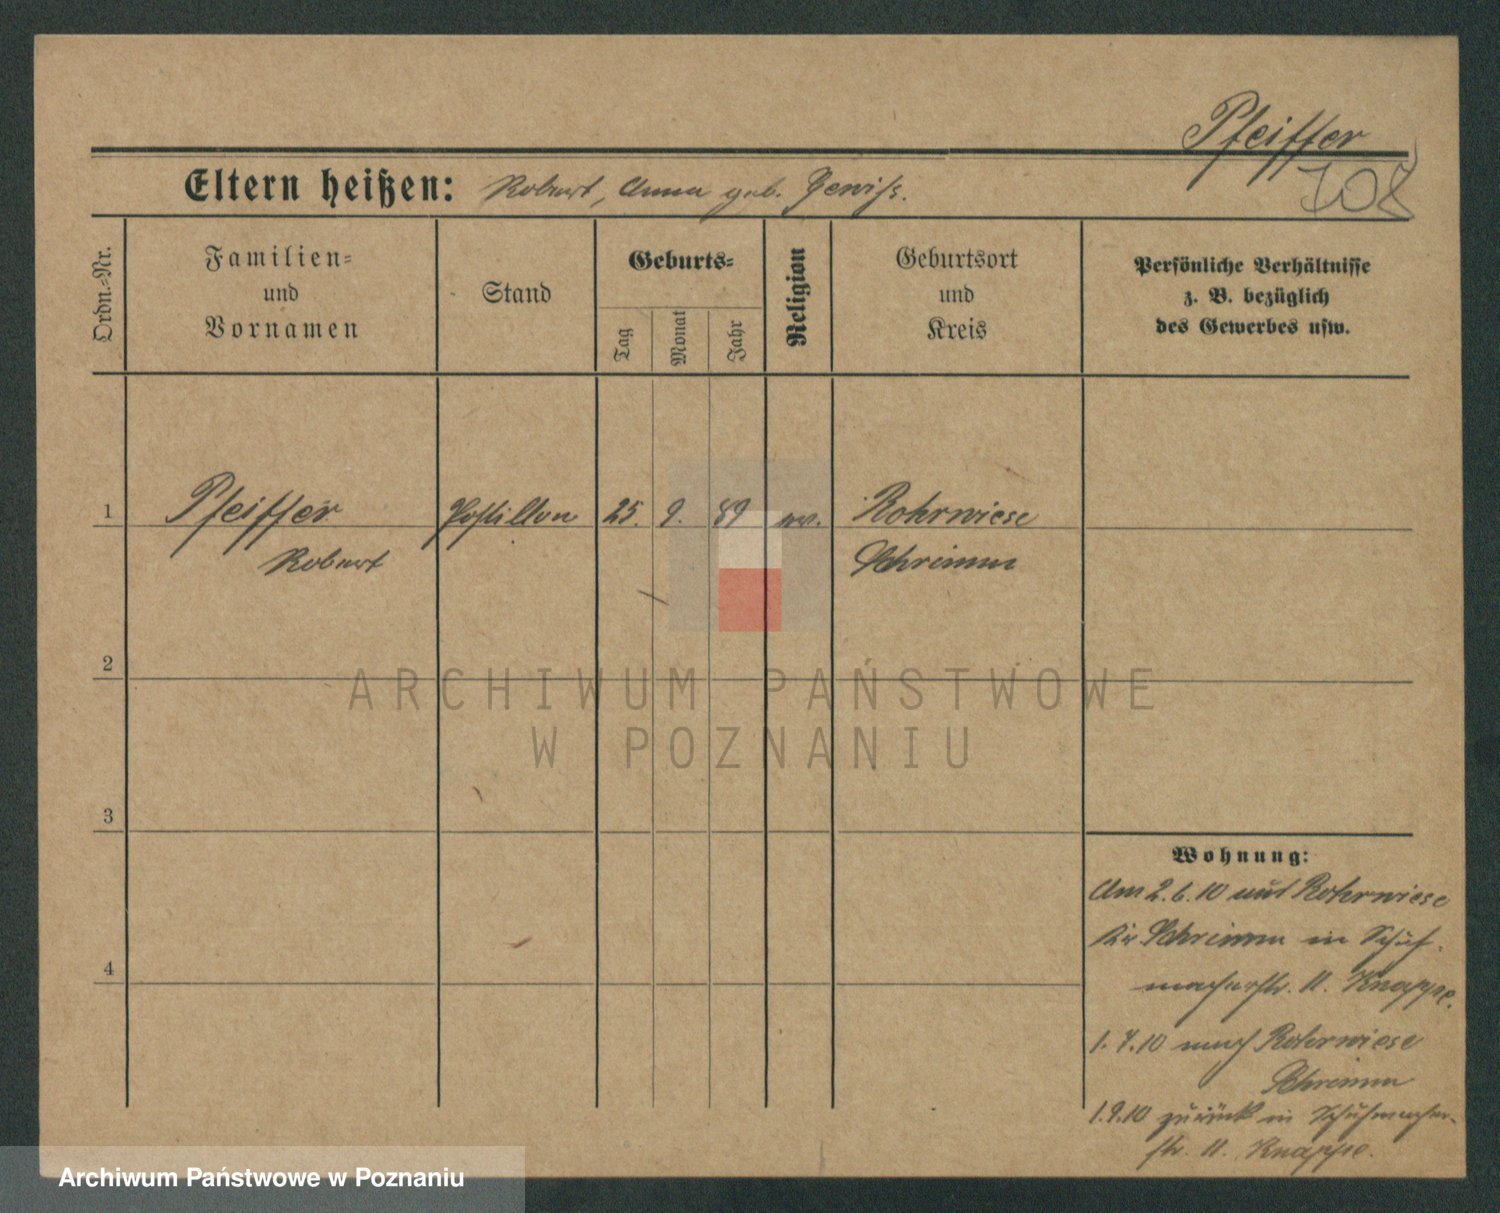 Pfeiffer
708
Eltern heißen: Robert, Anna geb. Gewiss.
Ordn.-Nr.
Familien-
und
Vornamen
Stand
Geburts-
Tag
Monat
Jahr
Religion
Geburtsort
und
Kreis
Persönliche Verhältnisse
z. B. bezüglich
des Gewerbes usw.
1 Pfeiffer Postillon 25. 9. 89 ev. Rohrwiese
Robert Schrimm
2
3
4
Wohnung:
Am 2.6.10 aus Rohrwiese
Kr Schrimm in Schuh-
macherstr. 11. Knappe.
1.7.10 nach Rohrwiese
Schrimm
1.9.10 zurück in Schuhmacher-
str. 11. Knappe.
ARCHIWUM PAŃSTWOWE
W POZNANIU
Archiwum Państwowe w Poznaniu